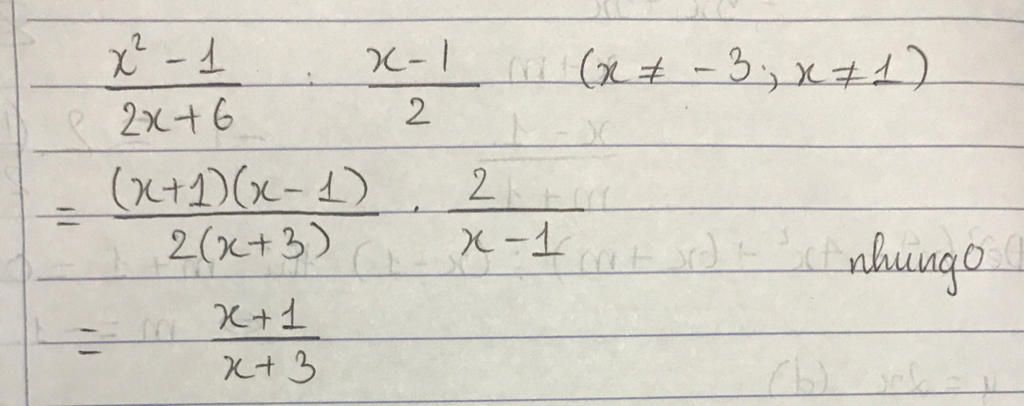 x² - 1 / 2x + 6 : x - 1 / 2 (x ≠ -3; x ≠ 1)
= (x+1)(x-1) / 2(x+3) . 2 / x - 1
nhungo
= x + 1 / x + 3